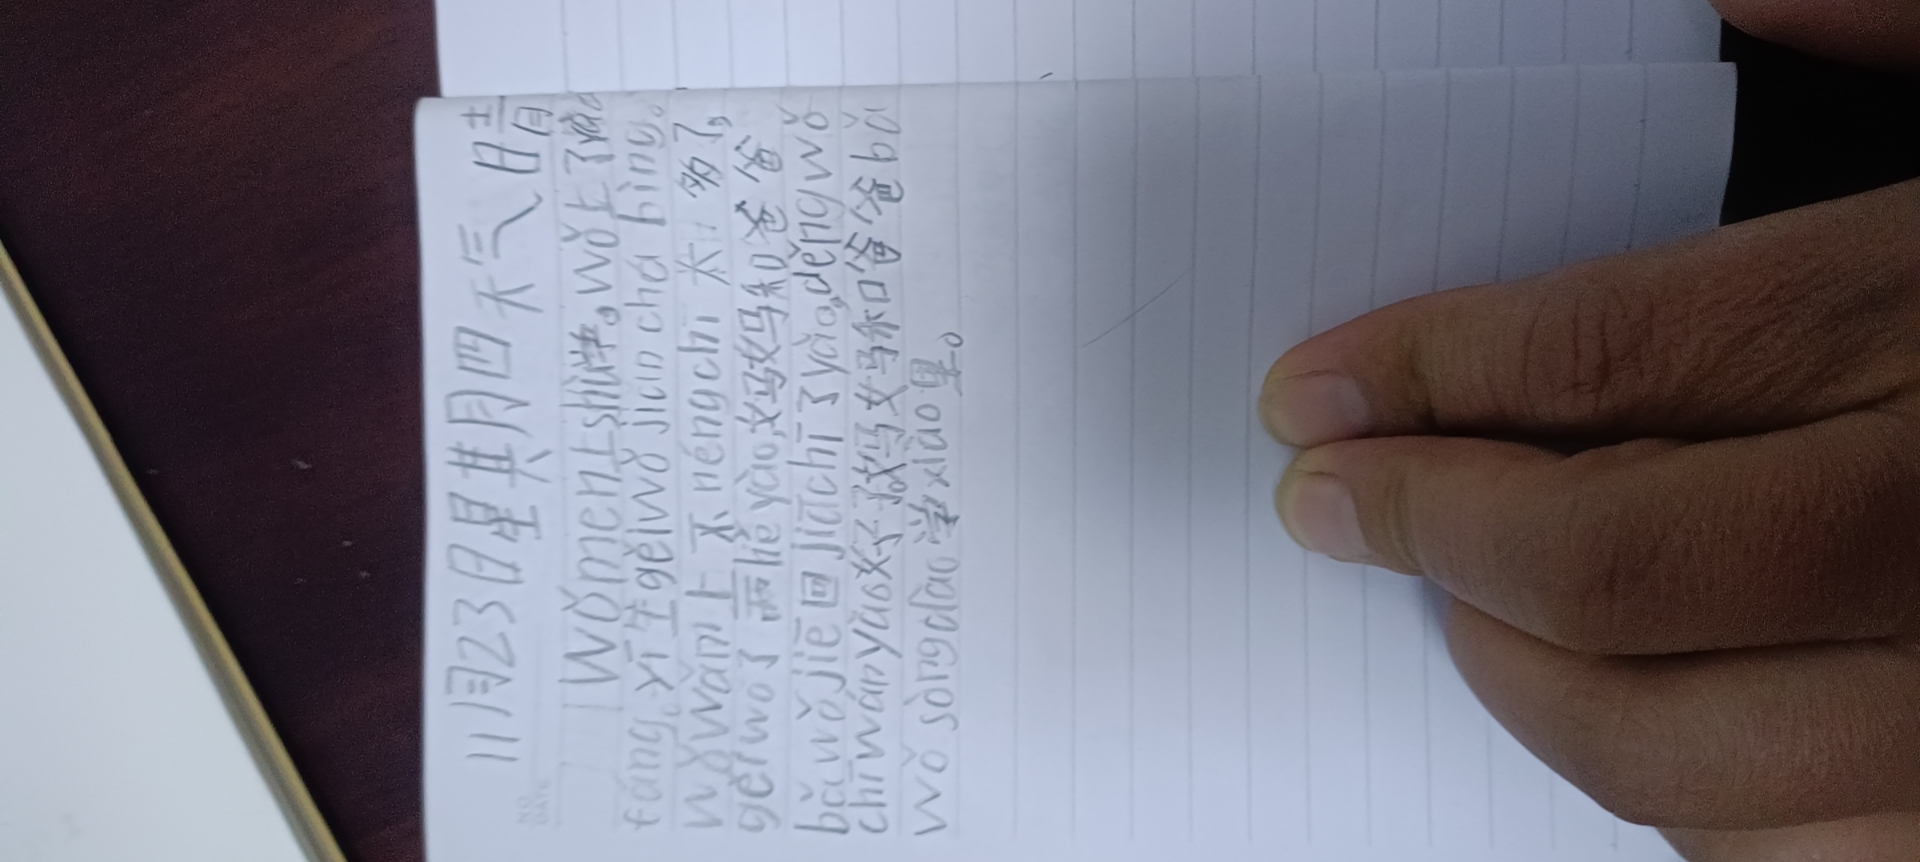 11月23日星其月四天气日晴
wǒmen上shù学。wǒ上了yào
fáng。yī生gěiwǒ jiǎn chá bìng。
wǒwǎn上不néngchī太多了,
gěiwǒ了两liēyào,妈妈和爸爸
bǎwǒjiē回jiāchī了yào,děngwǒ
chīwányào好了,妈妈和爸爸bǎ
wǒ sòngdào学xiào里。